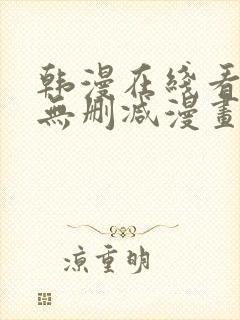 韩漫在线看
無删减漫畫
凉重明